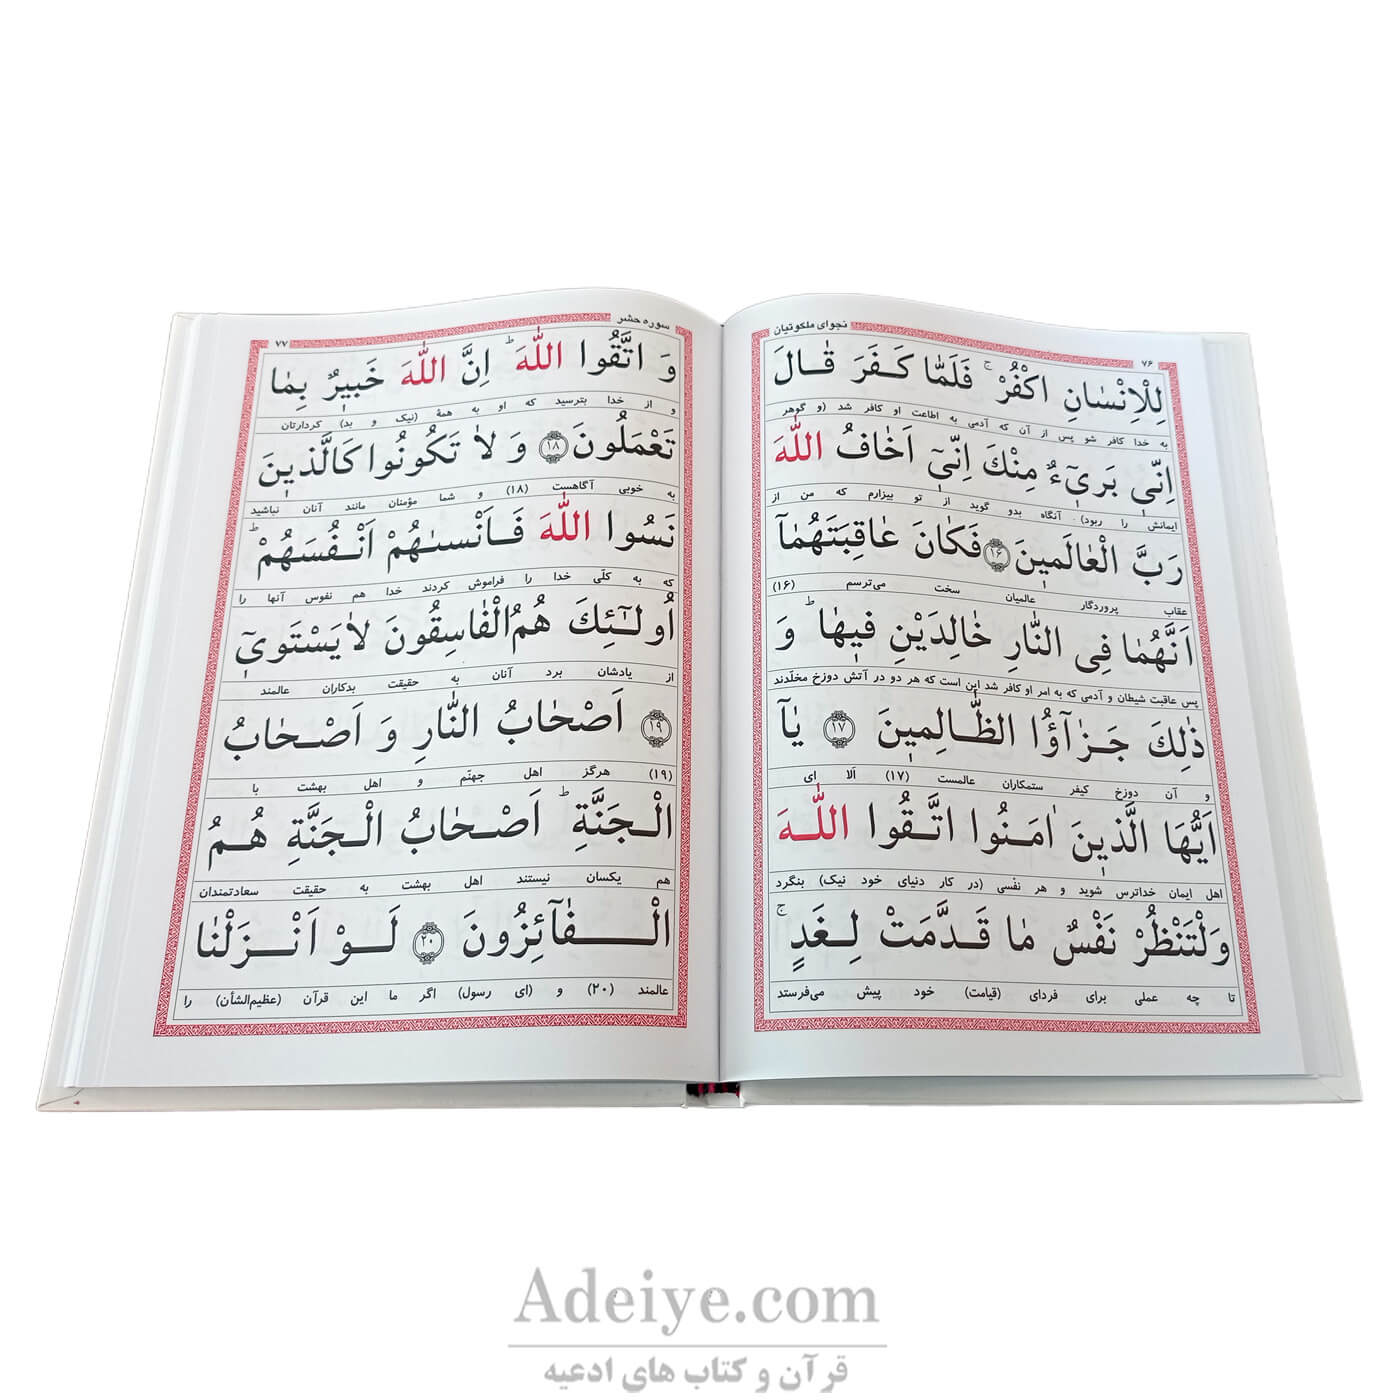 نجوای ملکوتیان
۷۶
لِلْاِنْسٰانِ اكْفُرْ ۚ فَلَمّٰا كَـفَرَ قٰـالَ
به خدا کافر شو پس از آن که آدمی به اطاعت او کافر شد (و گوهر
اِنّٖی بَرٖیٓءٌ مِنْكَ اِنّٖیٓ اَخٰافُ اللّٰهَ
ایمانش را ربود) آنگاه بدو گوید از تو بیزارم که من از
رَبَّ الْعٰالَمٖينَ ﴿۱۶﴾ فَكٰانَ عٰاقِبَتَهُمٰآ
عقاب پروردگار عالمیان سخت می‌ترسم (۱۶)
اَنَّهُمٰا فِی النّٰارِ خٰالِدَيْنِ فٖيهٰا ۖ وَ
پس عاقبت شیطان و آدمی که به امر او کافر شد این است که هر دو در آتش دوزخ مخلّدند
ذٰلِكَ جَـزٰٓاؤُا الظّٰـالِمٖينَ ﴿۱۷﴾ يٰآ
و آن دوزخ کیفر ستمکاران عالمست (۱۷) اَلا ای
اَيُّهَا الَّذٖينَ اٰمَـنُوا اتَّـقُوا اللّٰـهَ
اهل ایمان خداترس شوید و هر نفْسی (در کار دنیای خود نیک) بنگرد
وَلْتَنْظُرْ نَفْسٌ مٰا قَـدَّمَتْ لِـغَدٍ ۚ
تا چه عملی برای فردای (قیامت) خود پیش می‌فرستد
سوره حشر
۷۷
وَ اتَّقُوا اللّٰهَ ۖ اِنَّ اللّٰهَ خَبٖيرٌ بِمٰا
و از خدا بترسید که او به همهٔ (نیک و بد) کردارتان
تَعْمَلُونَ ﴿۱۸﴾ وَ لاٰ تَكُونُوا كَالَّذٖينَ
به خوبی آگاهست (۱۸) و شما مؤمنان مانند آنان نباشید
نَسُوا اللّٰهَ فَـاَنْسىٰهُمْ اَنْـفُسَهُمْ ۖ
که به کلّی خدا را فراموش کردند خدا هم نفوس آنها را
اُولٰـٓئِكَ هُمُ الْفٰاسِقُونَ لاٰ يَسْتَوٖیٓ
از یادشان برد آنان به حقیقت بدکاران عالمند
﴿۱۹﴾ اَصْحٰابُ النّٰارِ وَ اَصْـحٰابُ
(۱۹) هرگز اهل جهنّم و اهل بهشت با
الْـجَنَّةِ ۖ اَصْـحٰابُ الْـجَنَّةِ هُـمُ
هم یکسان نیستند اهل بهشت به حقیقت سعادتمندان
الْـفٰآئِزُونَ ﴿۲۰﴾ لَـوْ اَنْـزَلْنٰا
عالمند (۲۰) و (ای رسول) اگر ما این قرآن (عظیم‌الشأن) را
Adeiye.com
قرآن و کتاب های ادعیه